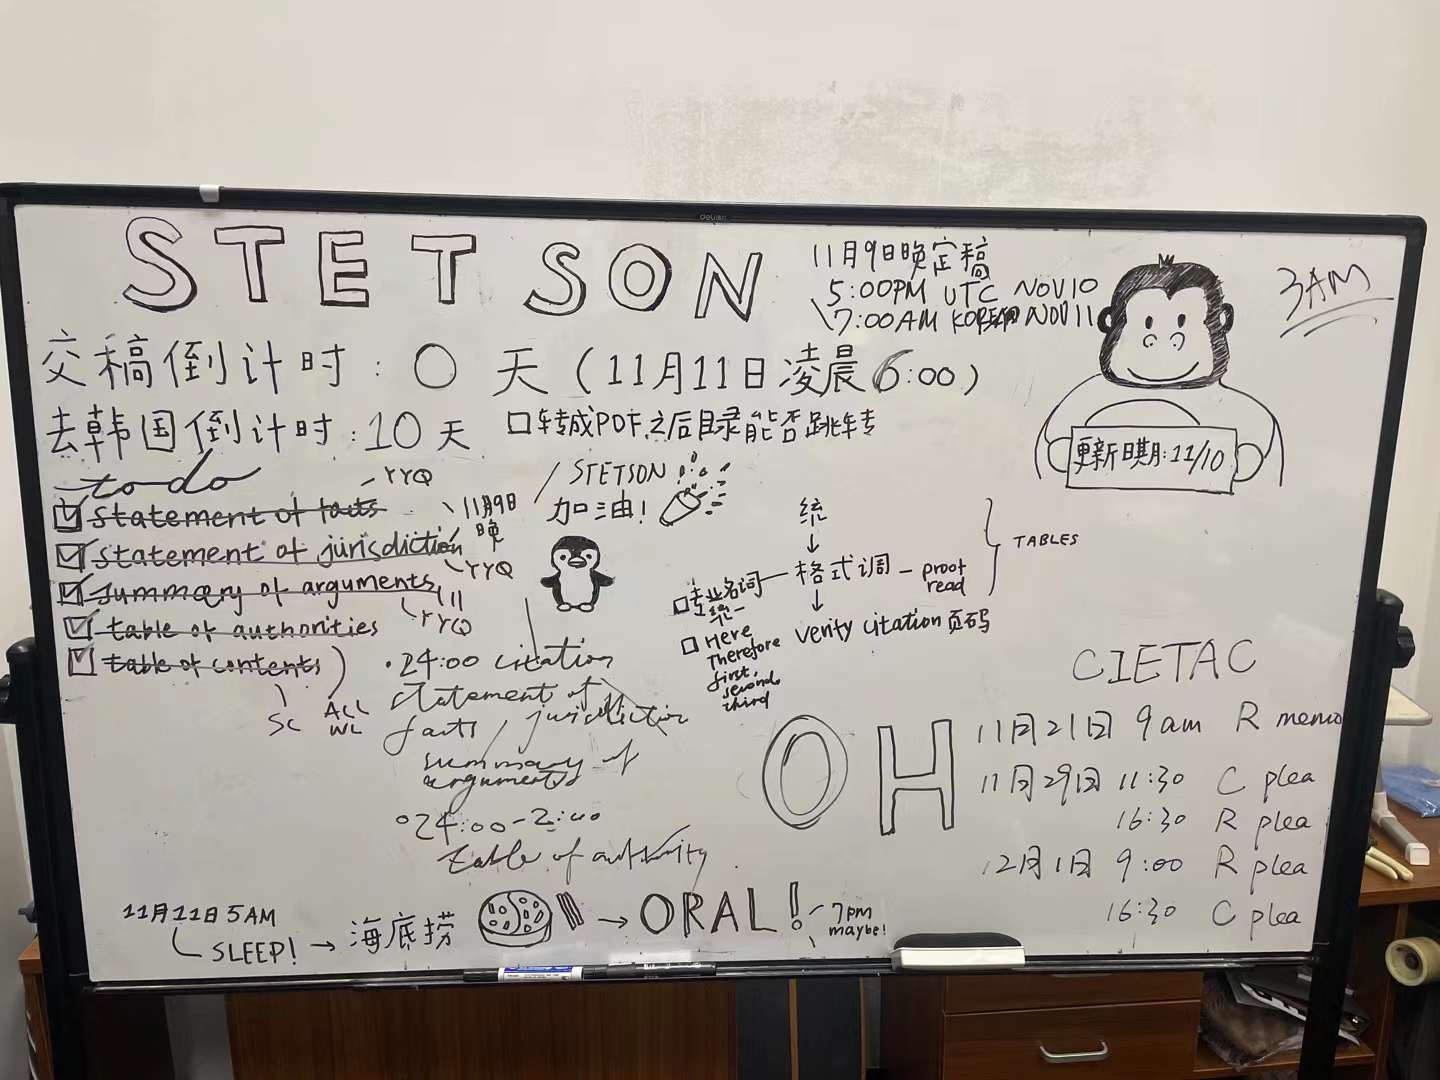 deli
STETSON
11月9日晚定稿
5:00PM UTC NOV10
7:00AM KOREAN NOV11
3AM
交稿倒计时: 0 天 (11月11日凌晨6:00)
去韩国倒计时: 10天
□转成PDF之后目录能否跳转
更新日期: 11/10
to do
YYQ
☑ statement of facts
11月9日
晚
☑ statement of jurisdiction
YYQ
☑ summary of arguments
YYQ
☑ table of authorities
☑ table of contents
SC
ALL
WL
STETSON
加油!
统
↓
□专业名词 — 格式调 — proof
read
统一
TABLES
↓
verify citation 页码
□ Here
Therefore
first,
second
third
• 24:00 citation
statement of
facts / jurisdiction
summary of
arguments
°24:00-2:00
table of authority
CIETAC
OH
11月21日 9am R memo
11月29日 11:30 C plea
16:30 R plea
12月1日 9:00 R plea
16:30 C plea
11月11日 5AM
SLEEP! → 海底捞 → ORAL!
7pm
maybe!